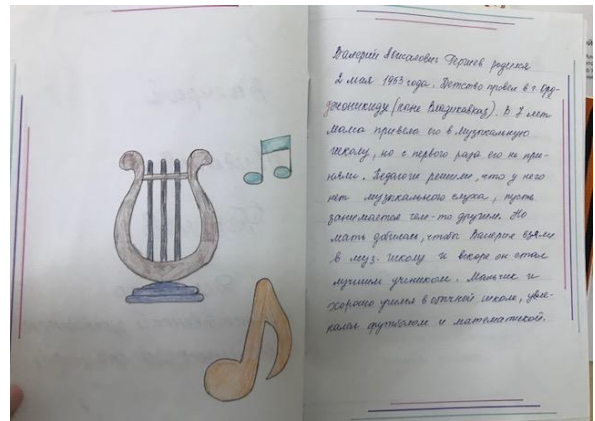 Валерий Абисалович Гергиев родился
2 мая 1953 года. Детство провел в г. Орд-
зоникидзе (ныне Владикавказ). В 7 лет
мама привела его в музыкальную
школу, но с первого раза его не при-
няли. Педагоги решили, что у него
нет музыкального слуха, пусть
занимается чем-то другим. Но
мать добилась, чтобы Валерия взяли
в муз. школу и вскоре он стал
лучшим учеником. Мальчик и
хорошо учился в обычной школе, увле-
кался футболом и математикой.